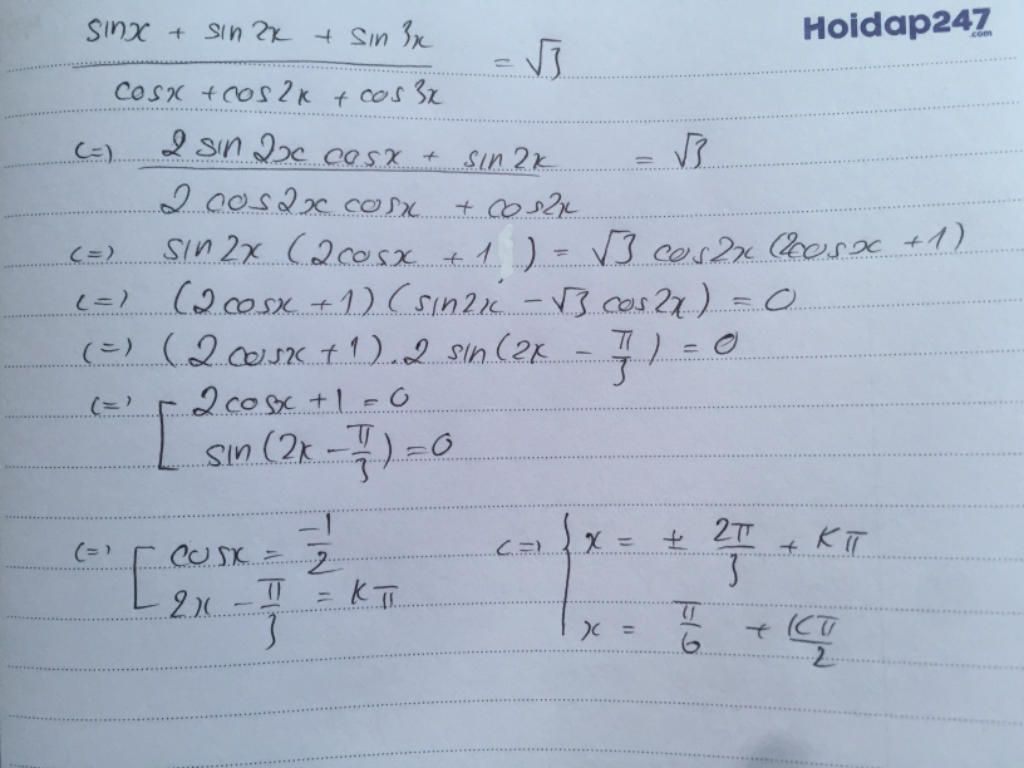 Hoidap247
.com
sinx + sin 2x + sin 3x
= √3
cosx + cos2x + cos 3x
(=) 2 sin 2x cosx + sin 2x = √3
2 cos2x cosx + cos2x
(=) sin 2x (2cosx + 1) = √3 cos2x (2cosx + 1)
(=) (2cosx + 1) (sin2x - √3 cos2x) = 0
(=) (2cosx + 1). 2 sin(2x - π/3) = 0
(=) [ 2cosx + 1 = 0
sin(2x - π/3) = 0
(=) [ cosx = -1/2 (=) { x = ± 2π/3 + Kπ
2x - π/3 = Kπ x = π/6 + Kπ/2